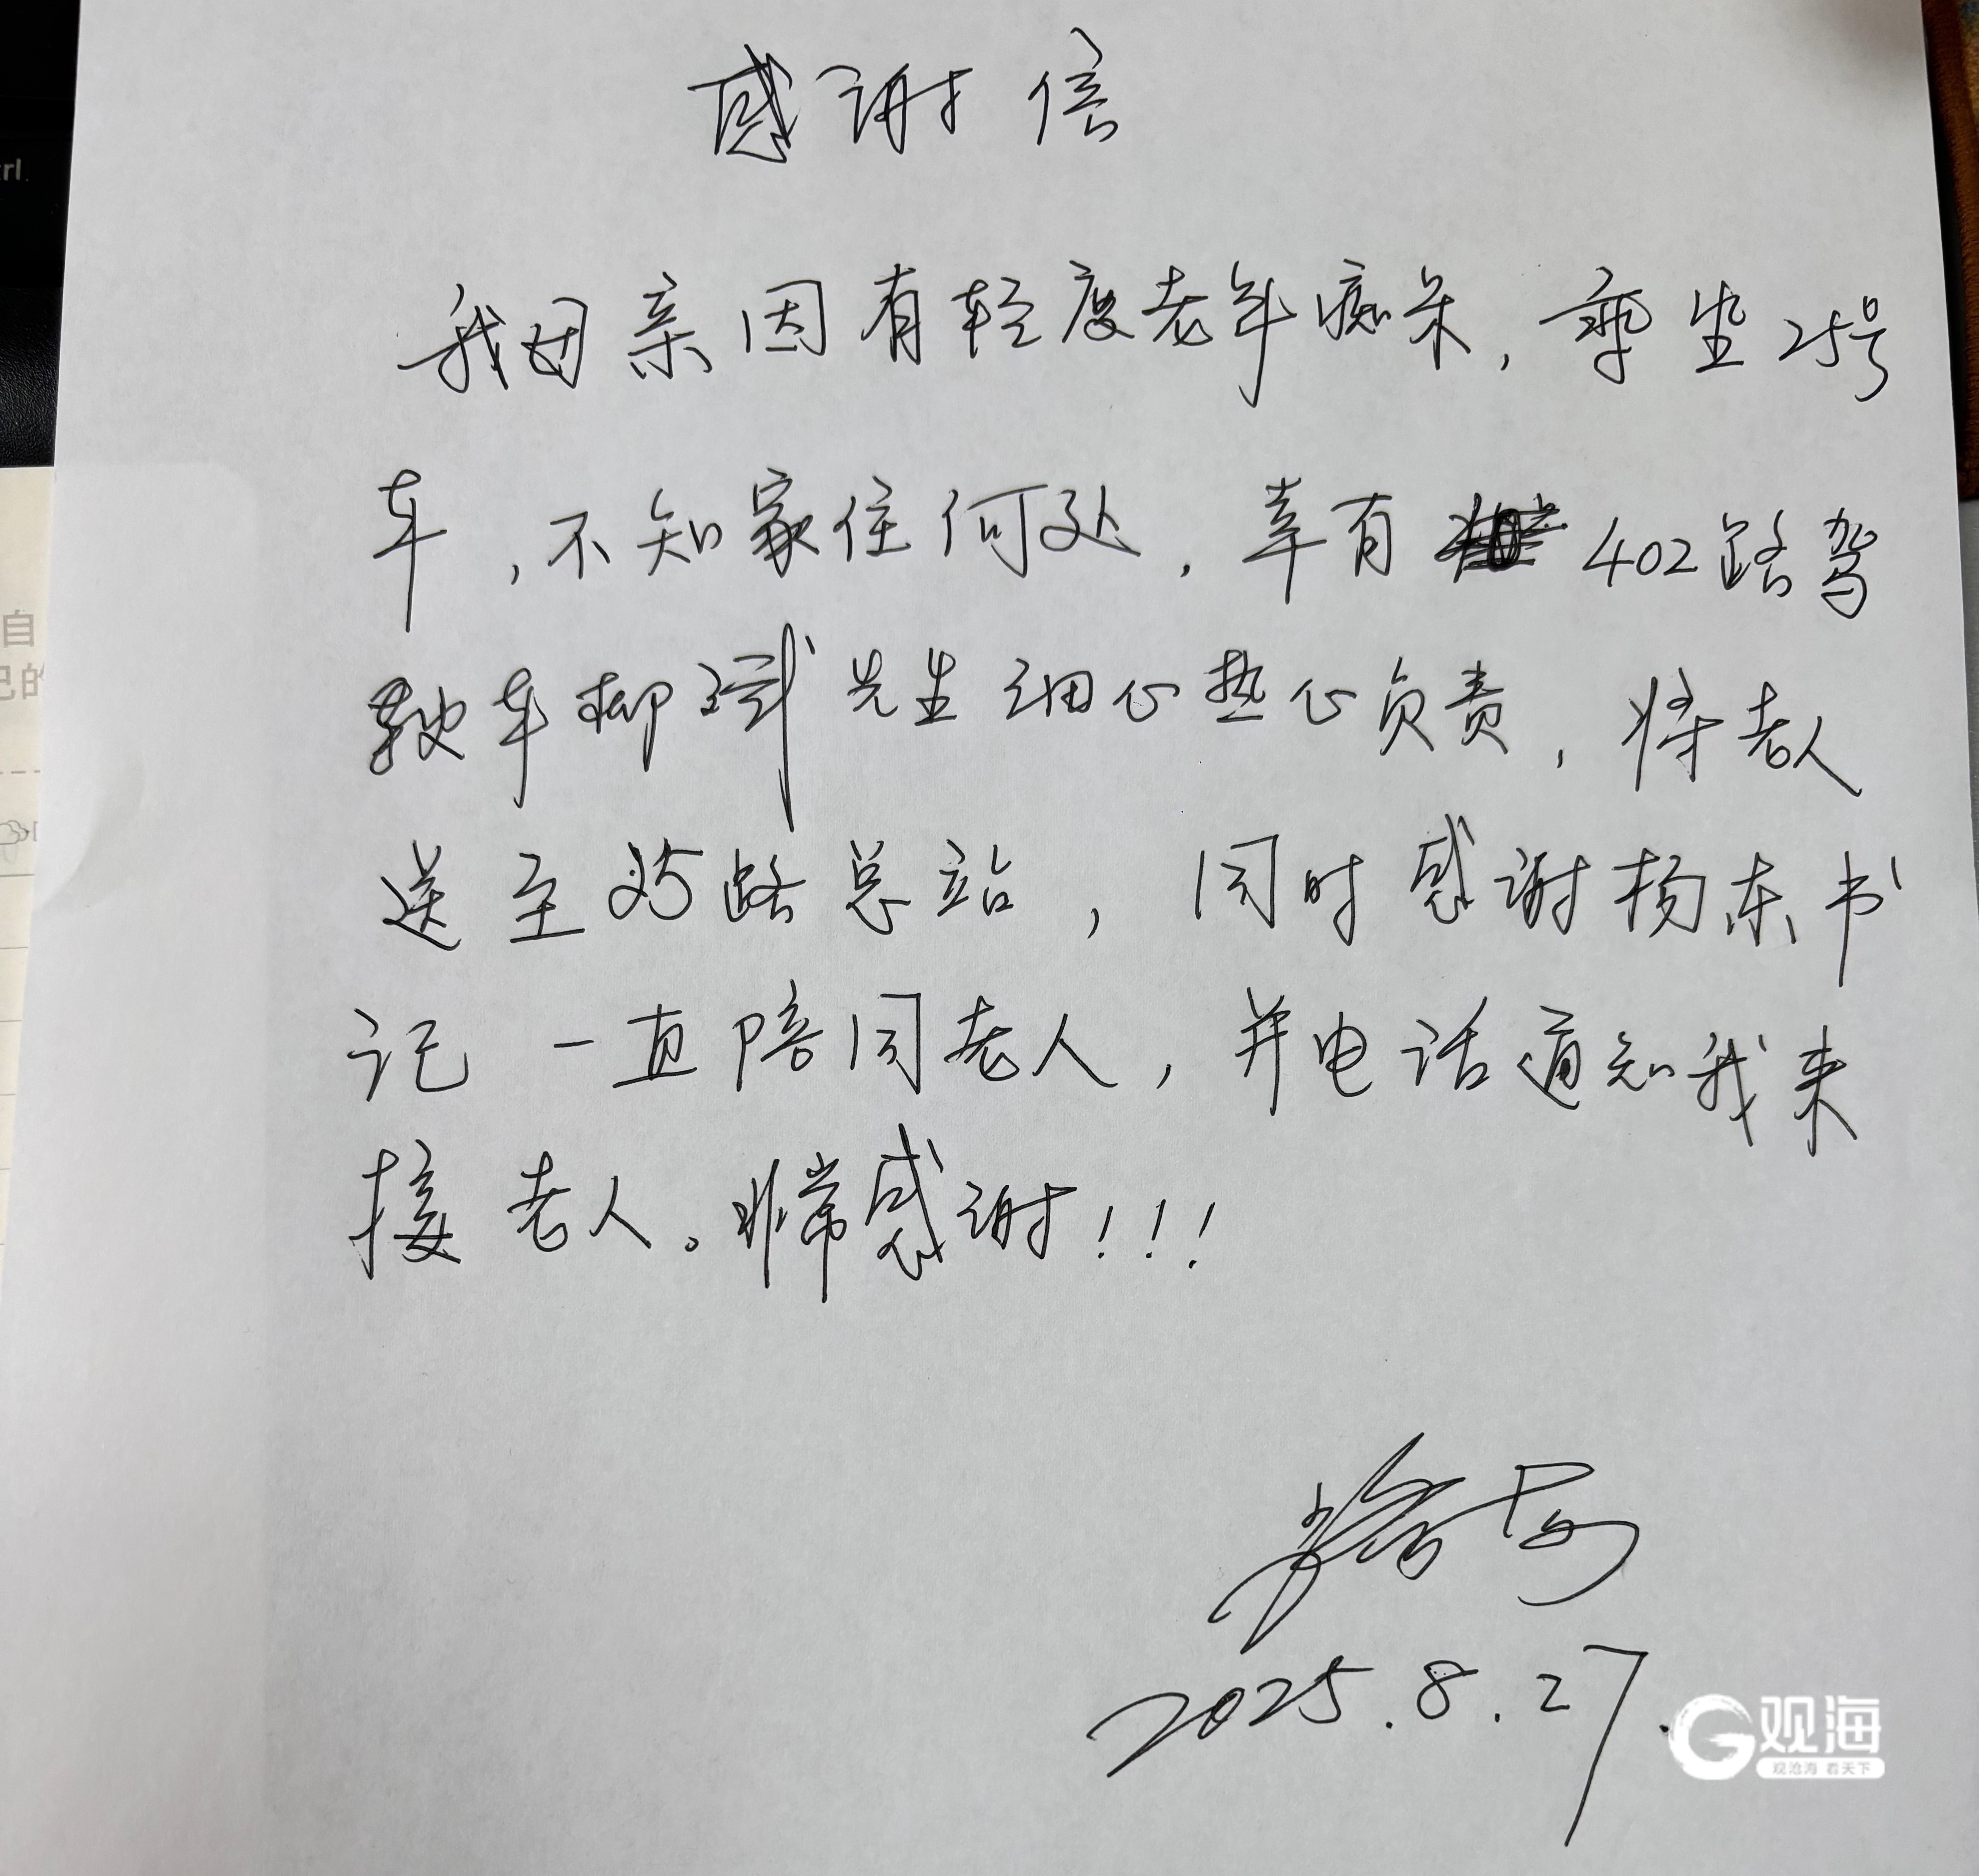 感谢信
我母亲因有轻度老年痴呆，乘坐25号
车，不知家住何处，幸有 402路驾
驶车柳斌先生细心热心负责，将老人
送至25路总站，同时感谢杨东书
记一直陪同老人，并电话通知我来
接老人。非常感谢！！！
2025.8.27.
rl
自
己的
观海
观沧海 看天下